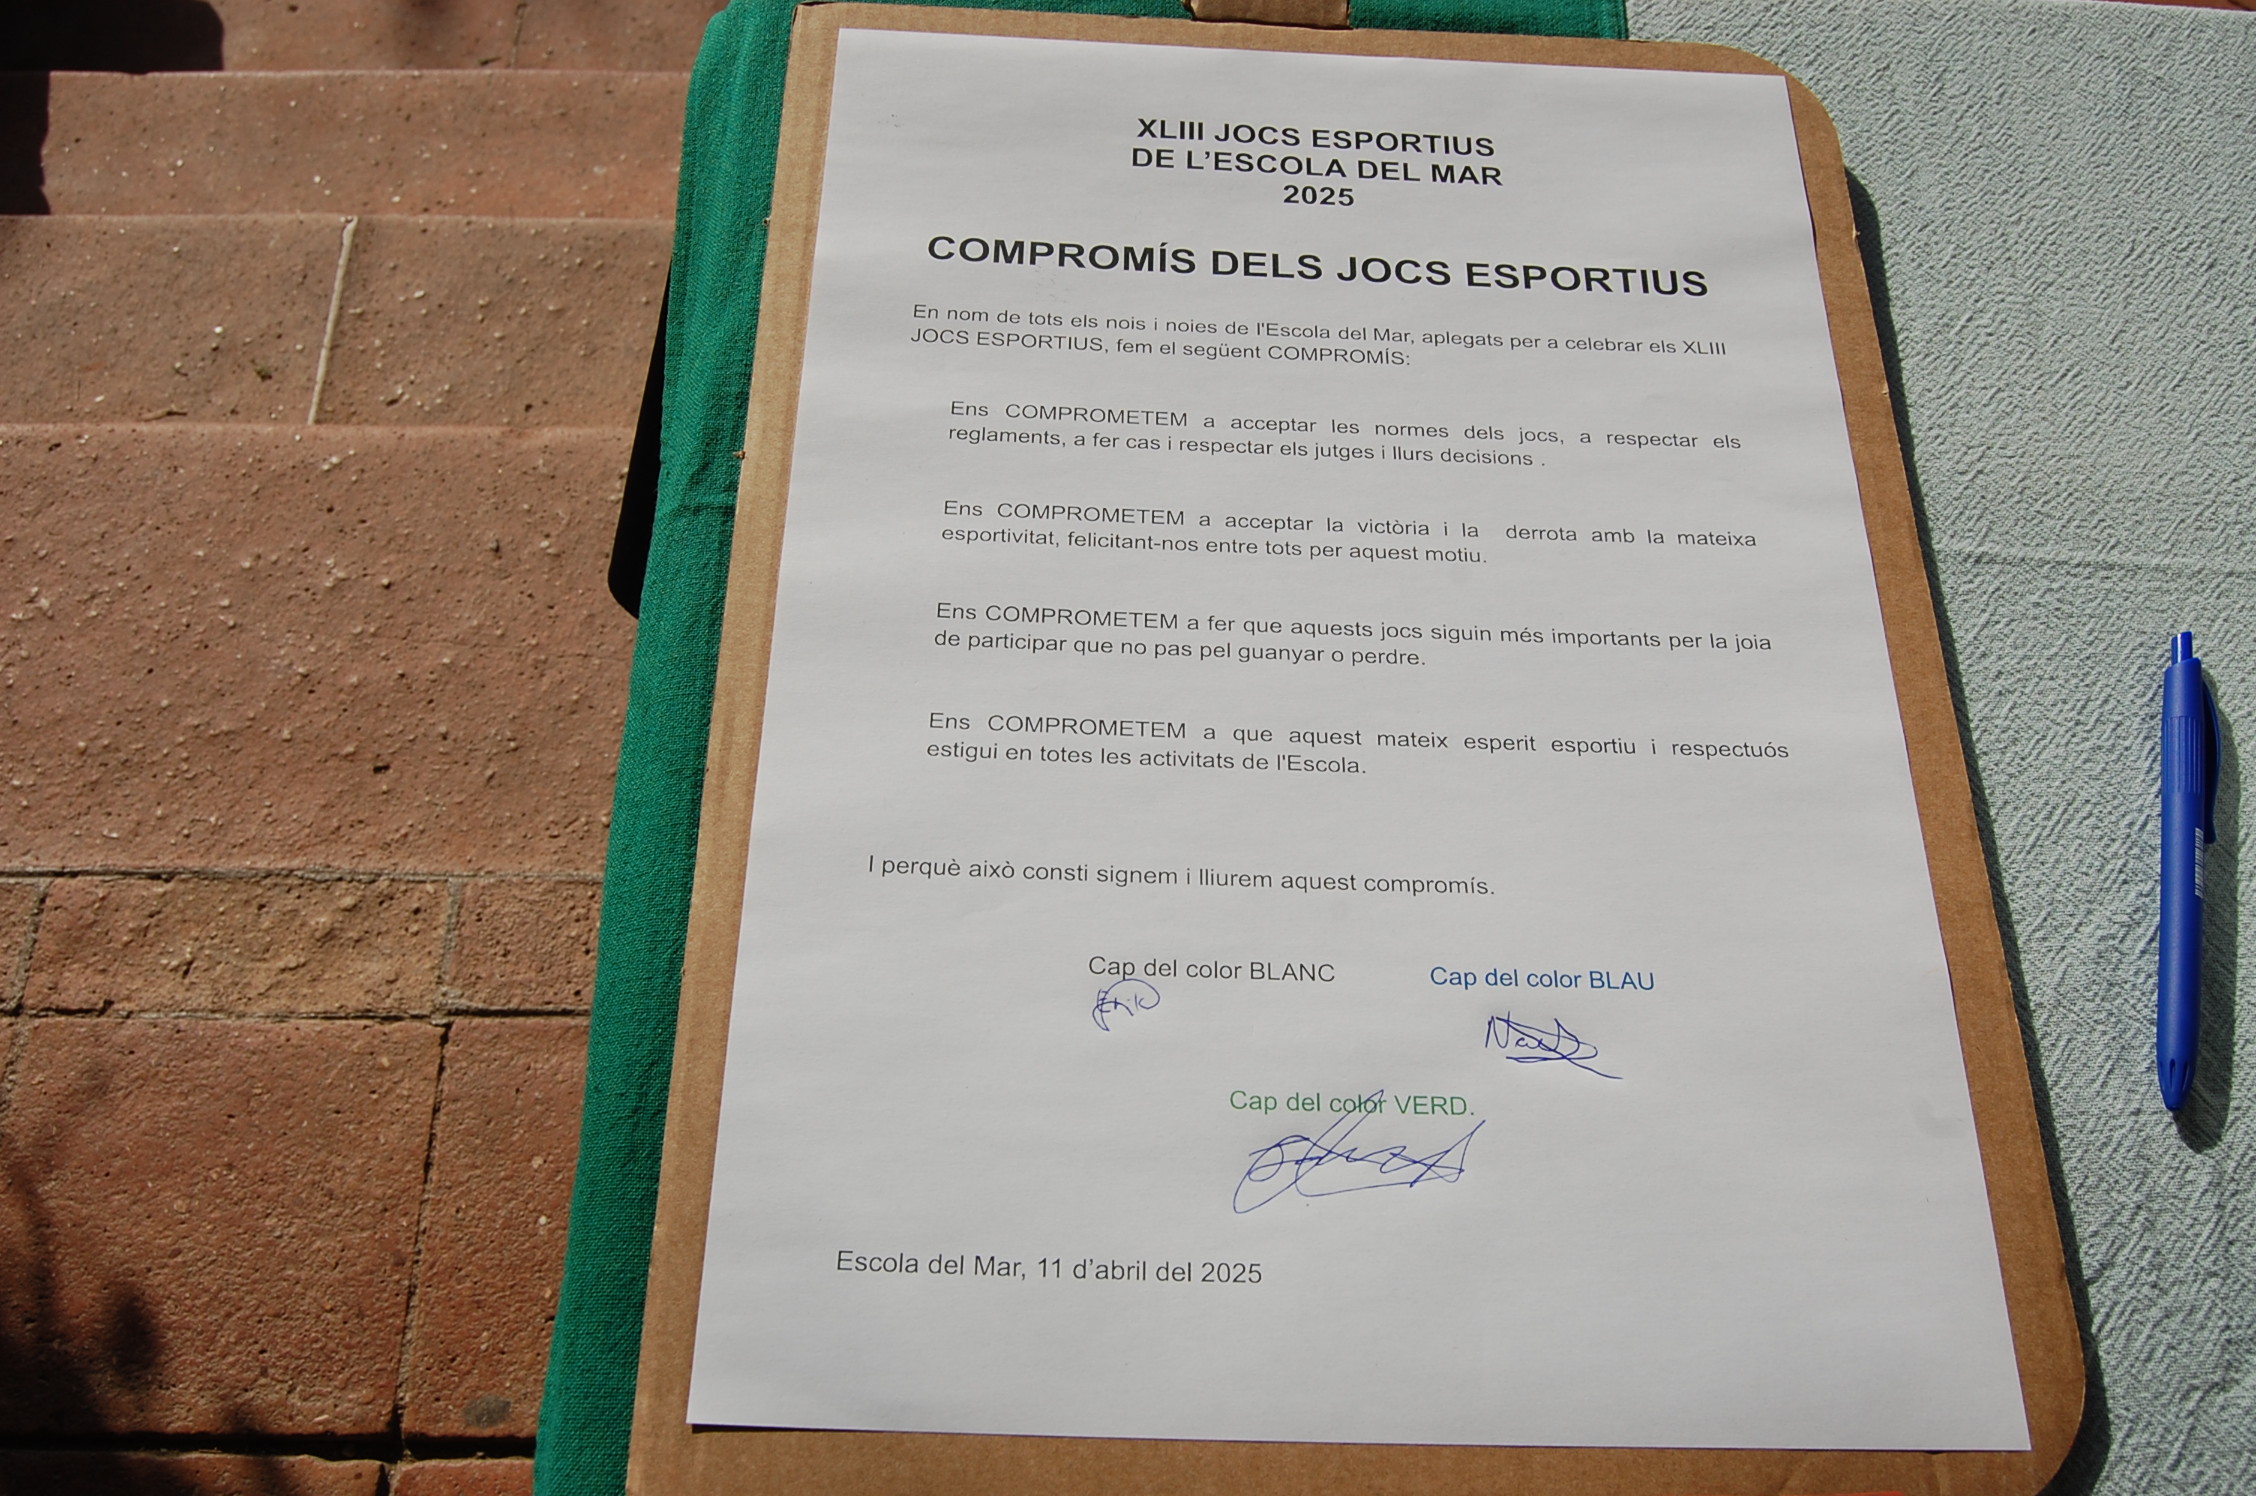 XLIII JOCS ESPORTIUS
DE L'ESCOLA DEL MAR
2025
COMPROMÍS DELS JOCS ESPORTIUS
En nom de tots els nois i noies de l'Escola del Mar, aplegats per a celebrar els XLIII
JOCS ESPORTIUS, fem el següent COMPROMÍS:
Ens COMPROMETEM a acceptar les normes dels jocs, a respectar els
reglaments, a fer cas i respectar els jutges i llurs decisions .
Ens COMPROMETEM a acceptar la victòria i la derrota amb la mateixa
esportivitat, felicitant-nos entre tots per aquest motiu.
Ens COMPROMETEM a fer que aquests jocs siguin més importants per la joia
de participar que no pas pel guanyar o perdre.
Ens COMPROMETEM a que aquest mateix esperit esportiu i respectuós
estigui en totes les activitats de l'Escola.
I perquè això consti signem i lliurem aquest compromís.
Cap del color BLANC
Cap del color BLAU
Cap del color VERD.
Escola del Mar, 11 d'abril del 2025